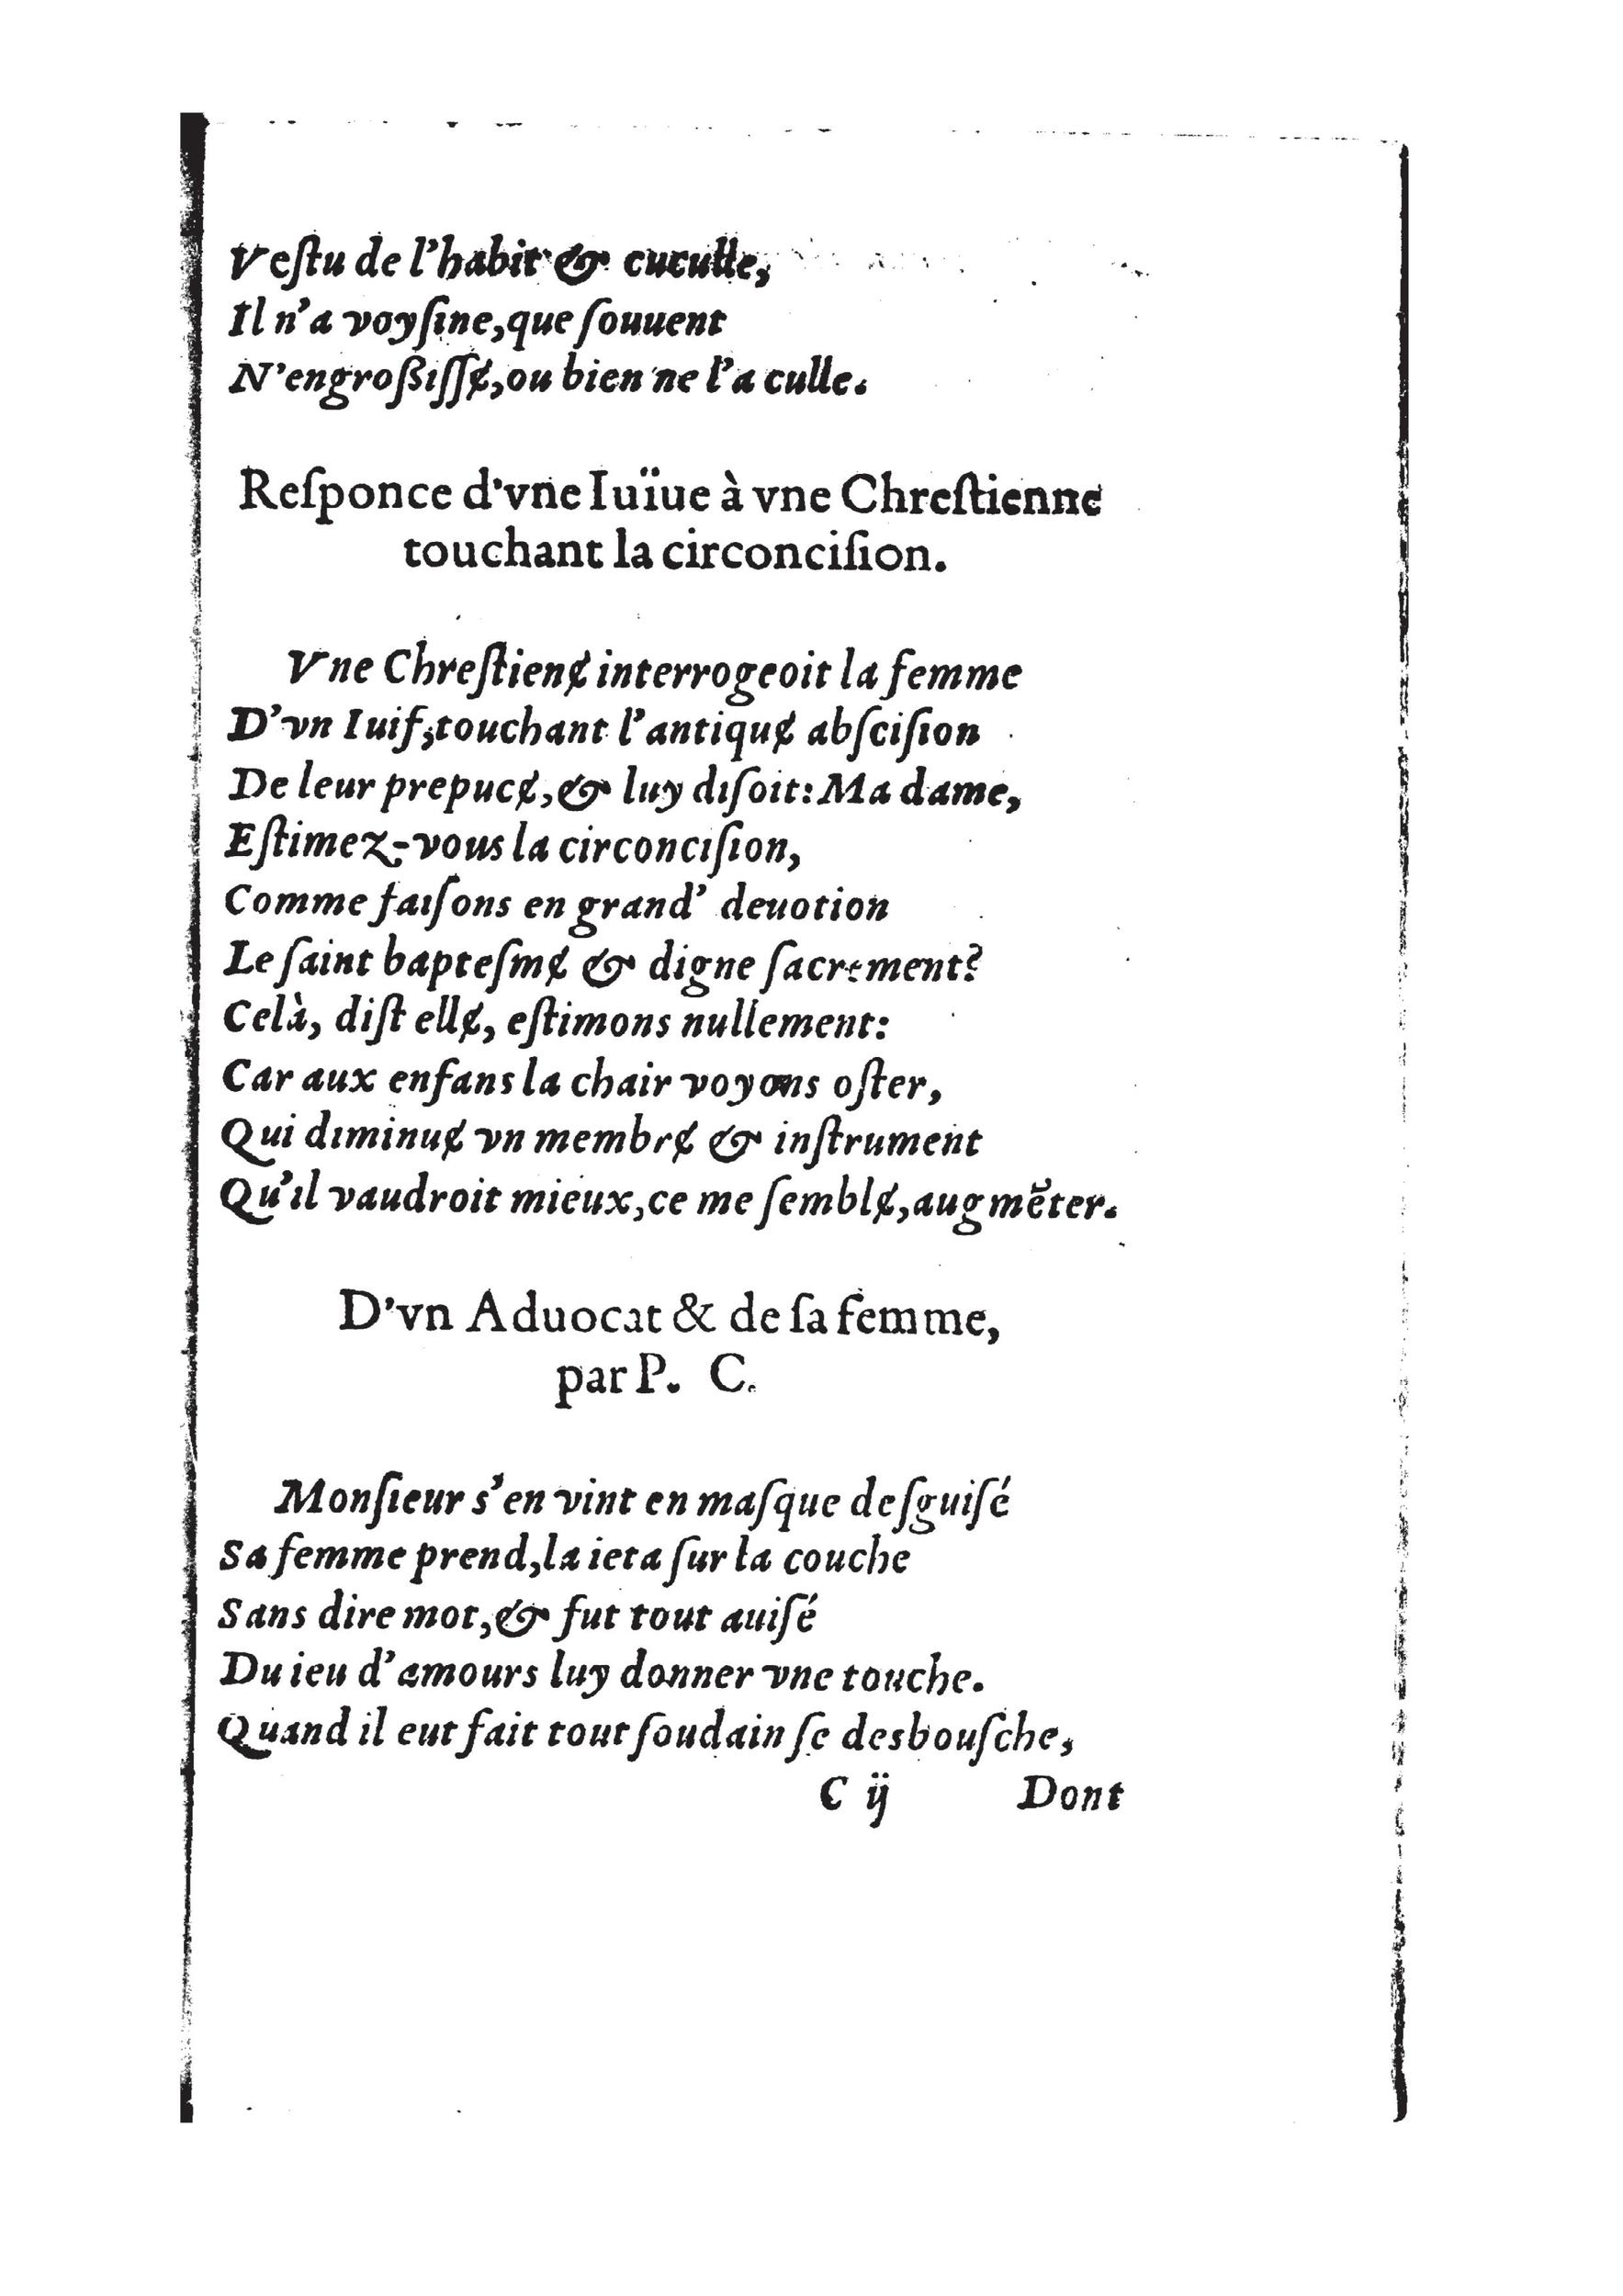 Veſtu de l'habit & cuculle,
Il n'a voyſine, que ſouuent
N'engroßiſſɇ, ou bien ne l'a culle.
Reſponce d'vne Iuïue à vne Chreſtienne
touchant la circonciſion.
Vne Chreſtienɇ interrogeoit la femme
D'vn Iuif, touchant l'antiquɇ abſciſion
De leur prepucɇ, & luy diſoit: Ma dame,
Eſtimez-vous la circonciſion,
Comme faiſons en grand' deuotion
Le ſaint bapteſmɇ & digne ſacrement?
Celà, diſt ellɇ, eſtimons nullement:
Car aux enfans la chair voyons oſter,
Qui diminuɇ vn membrɇ & inſtrument
Qu'il vaudroit mieux, ce me ſemblɇ, augmẽter.
D'vn Aduocat & de ſa femme,
par P. C.
Monſieur s'en vint en maſque deſguiſé
Sa femme prend, la ieta ſur la couche
Sans dire mot, & fut tout auiſé
Du ieu d'amours luy donner vne touche.
Quand il eut fait tout ſoudain ſe desbouſche,
C ij Dont